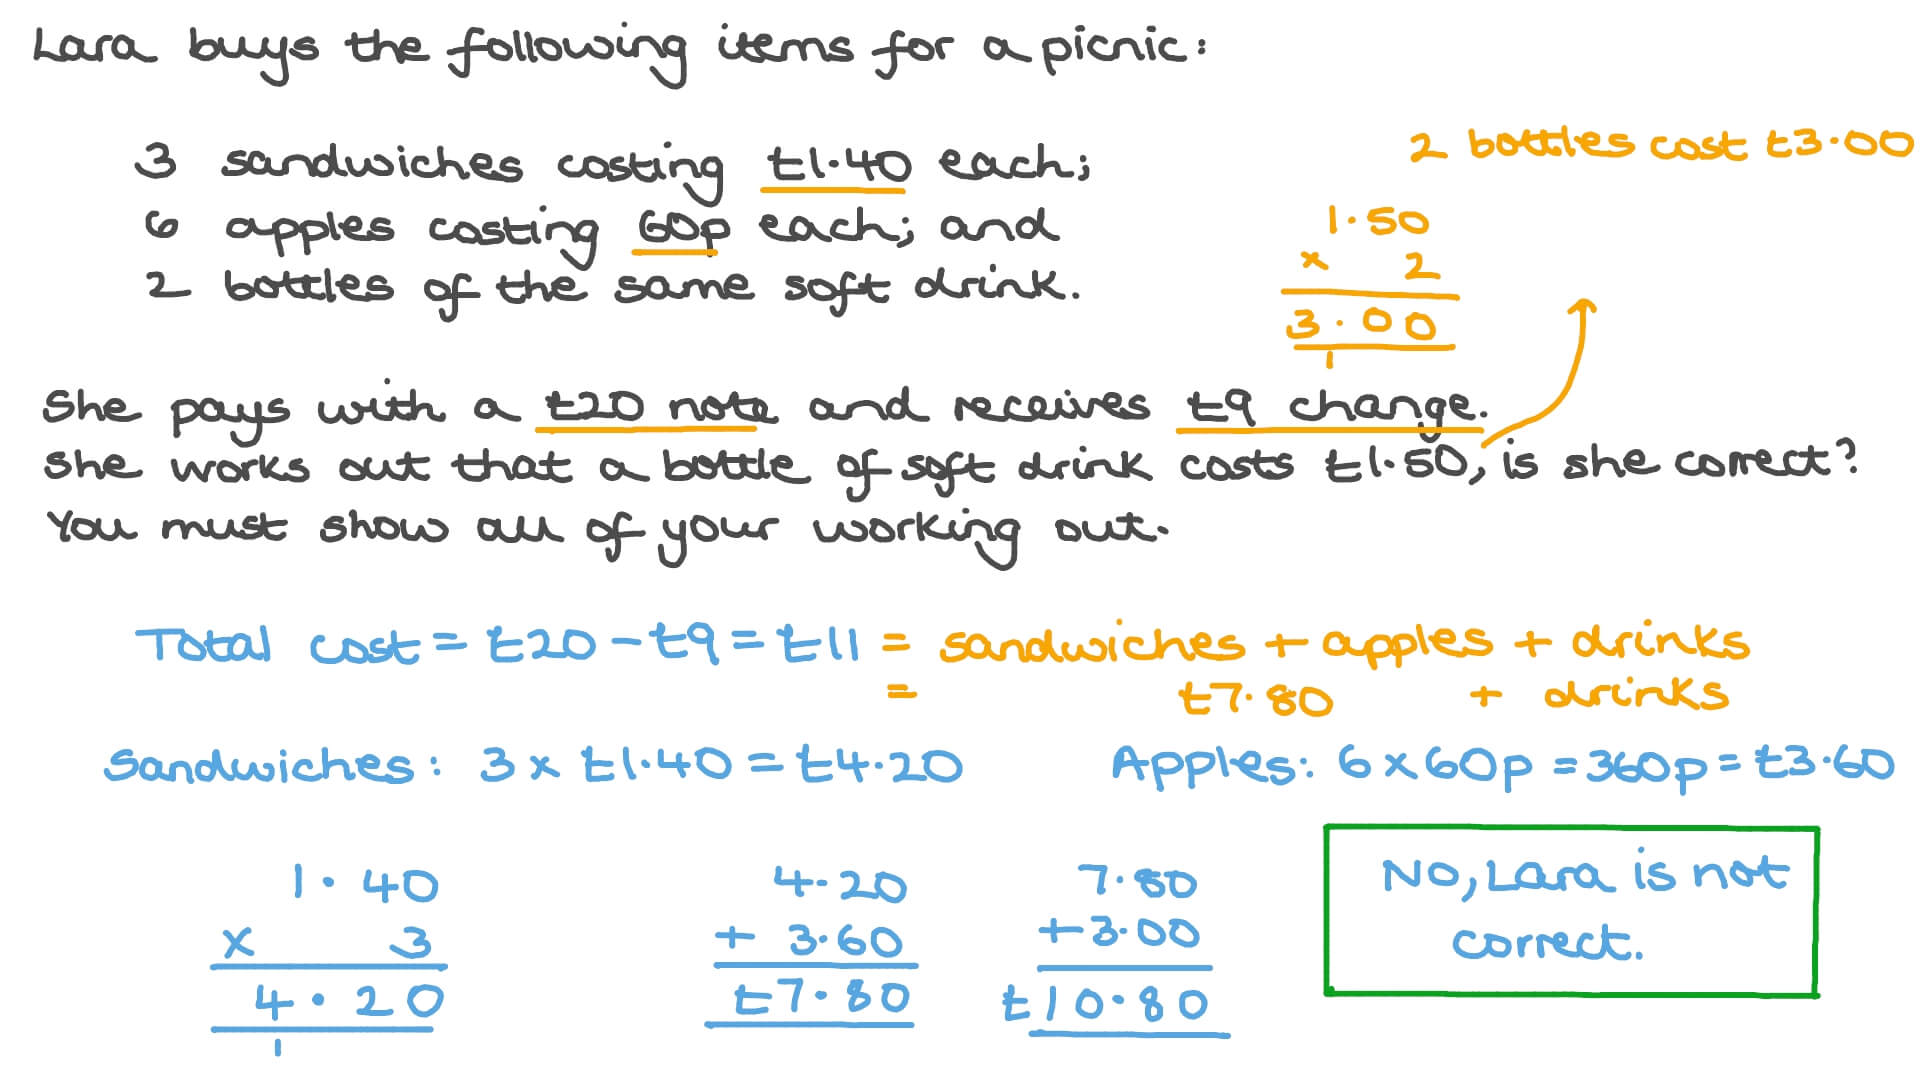 Lara buys the following items for a picnic:
3 sandwiches costing £1.40 each;
6 apples costing 60p each; and
2 bottles of the same soft drink.
2 bottles cost £3.00
1.50
× 2
3.00
1
She pays with a £20 note and receives £9 change.
She works out that a bottle of soft drink costs £1.50, is she correct?
You must show all of your working out.
Total cost = £20 - £9 = £11 = sandwiches + apples + drinks
= £7.80 + drinks
Sandwiches: 3 × £1.40 = £4.20
Apples: 6 × 60p = 360p = £3.60
1.40
× 3
4.20
1
4.20
+ 3.60
£7.80
7.80
+3.00
£10.80
No, Lara is not
correct.